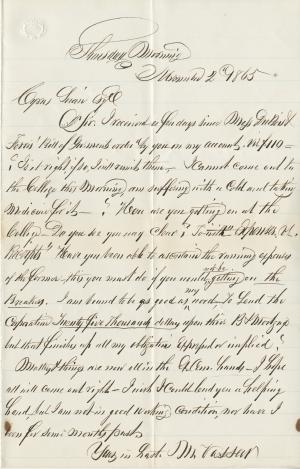 Thursday Morning
November 2d 1865
Cyrus Swan Esq
Dr Sir, I received a few days since Mess
Bill of Garments ord by you on my account,
Is it right if so, I will remit them, I Cannot come out to
the College this Morning, am suffering with a Cold and taking
Medicine for it — How are you getting on at the
College Do you see your way Clear? Expenses, &
Receipts? Have you been able to ascertain the running expenses
of the former, this you must do if you would not be getting on the
Breakers. I am bound to be as good as my word — To Lend the
Corporation Twenty five thousand dollars upon their Bd & Mortgage
but that finishes up all my obligations expressed or implied?
Matters & things are now all in the Hands — I hope
all will come out right — I wish I Could lend you a helping
hand, but I am not in good Working Condition, nor have I
been for some months past.
Yours in haste M. Vassar